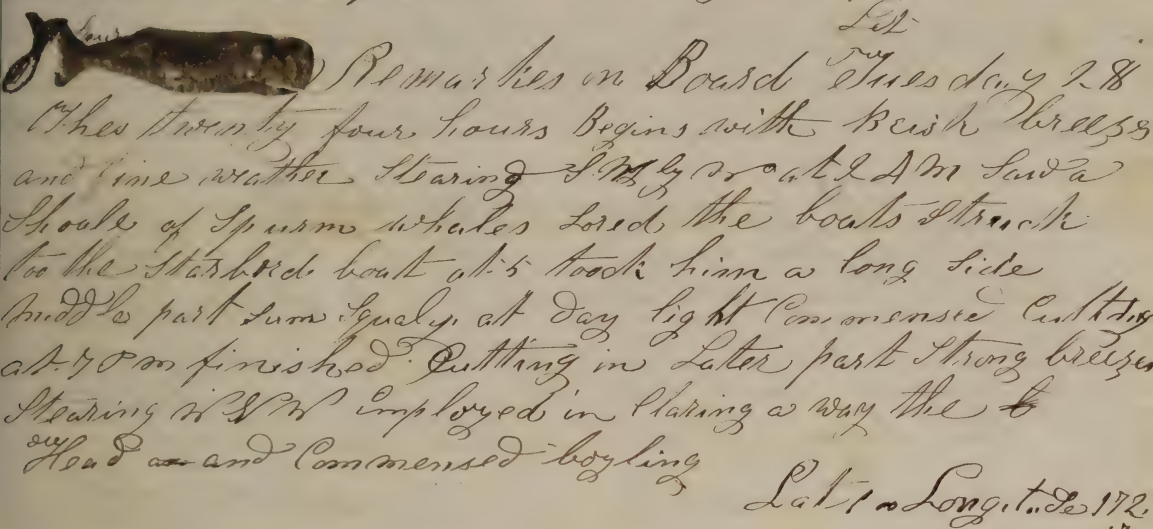 Remarkes on Board Tuesday 28
Thes twenty four hours Begins with Brisk breezes
and fine weather Stearing by at 2 AM Saw a
Shoale of Spurm whales Lored the boats Struck
too the Starbord boat at 5 toock him a long Side
middle part Sum Squaly at Day light Commensed Cutting
at 7 Pm finished Cutting in Later part Strong breezes
Stearing WSW imployed in Claring a way the
Head and Commensed boyling
Lat Longitude 172